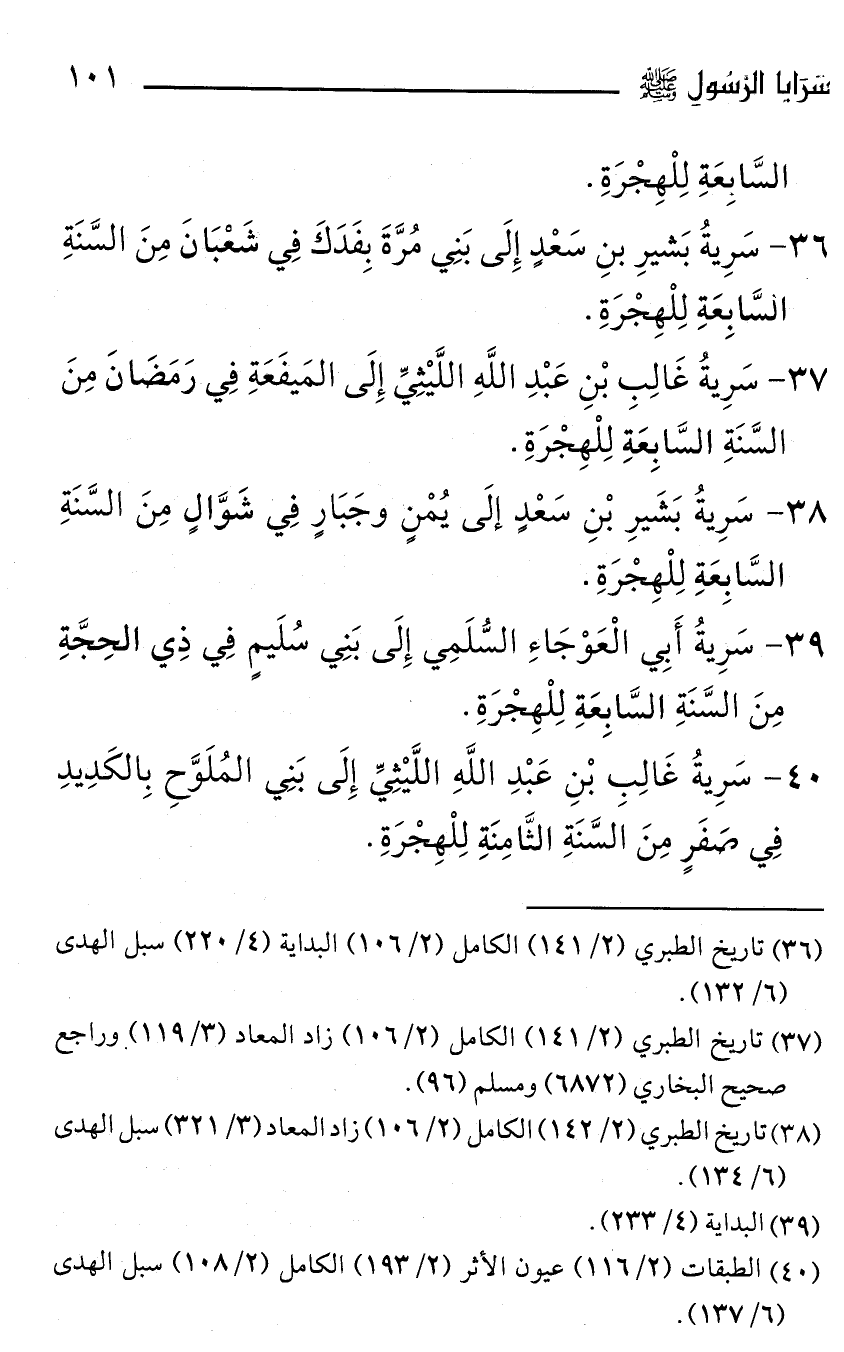 سَرَايا الرَّسُولِ ﷺ ١٠١
السَّابِعَةِ لِلْهِجْرَةِ.
٣٦- سَرِيةُ بَشيرِ بنِ سَعْدٍ إِلَى بَنِي مُرَّةَ بِفَدَكَ فِي شَعْبَانَ مِنَ السَّنَةِ
السَّابِعَةِ لِلْهِجْرَةِ.
٣٧- سَرِيةُ غَالِبِ بْنِ عَبْدِ اللَّهِ اللَّيْثِيِّ إِلَى المَيفَعَةِ فِي رَمَضَانَ مِنَ
السَّنَةِ السَّابِعَةِ لِلْهِجْرَةِ.
٣٨- سَرِيةُ بَشَيرِ بْنِ سَعْدٍ إلَى يُمْنٍ وجَبَارٍ فِي شَوَّالٍ مِنَ السَّنَةِ
السَّابِعَةِ لِلْهِجْرَةِ.
٣٩- سَرِيةُ أَبِي الْعَوْجَاءِ السُّلَمِي إِلَى بَنِي سُلَيمٍ فِي ذِي الحِجَّةِ
مِنَ السَّنَةِ السَّابِعَةِ لِلْهِجْرَةِ.
٤٠- سَرِيةُ غَالِبِ بْنِ عَبْدِ اللَّهِ اللَّيْثِيِّ إِلَى بَنِي المُلَوَّحِ بِالكَدِيدِ
فِي صَفَرٍ مِنَ السَّنَةِ الثَّامِنَةِ لِلْهِجْرَةِ.
(٣٦) تاريخ الطبري (٢/ ١٤١) الكامل (٢/ ١٠٦) البداية (٤/ ٢٢٠) سبل الهدى
(٦/ ١٣٢).
(٣٧) تاريخ الطبري (٢/ ١٤١) الكامل (٢/ ١٠٦) زاد المعاد (٣/ ١١٩) وراجع
صحيح البخاري (٦٨٧٢) ومسلم (٩٦).
(٣٨) تاريخ الطبري (٢/ ١٤٢) الكامل (٢/ ١٠٦) زاد المعاد (٣/ ٣٢١) سبل الهدى
(٦/ ١٣٤).
(٣٩) البداية (٤/ ٢٣٣).
(٤٠) الطبقات (٢/ ١١٦) عيون الأثر (٢/ ١٩٣) الكامل (٢/ ١٠٨) سبل الهدى
(٦/ ١٣٧).